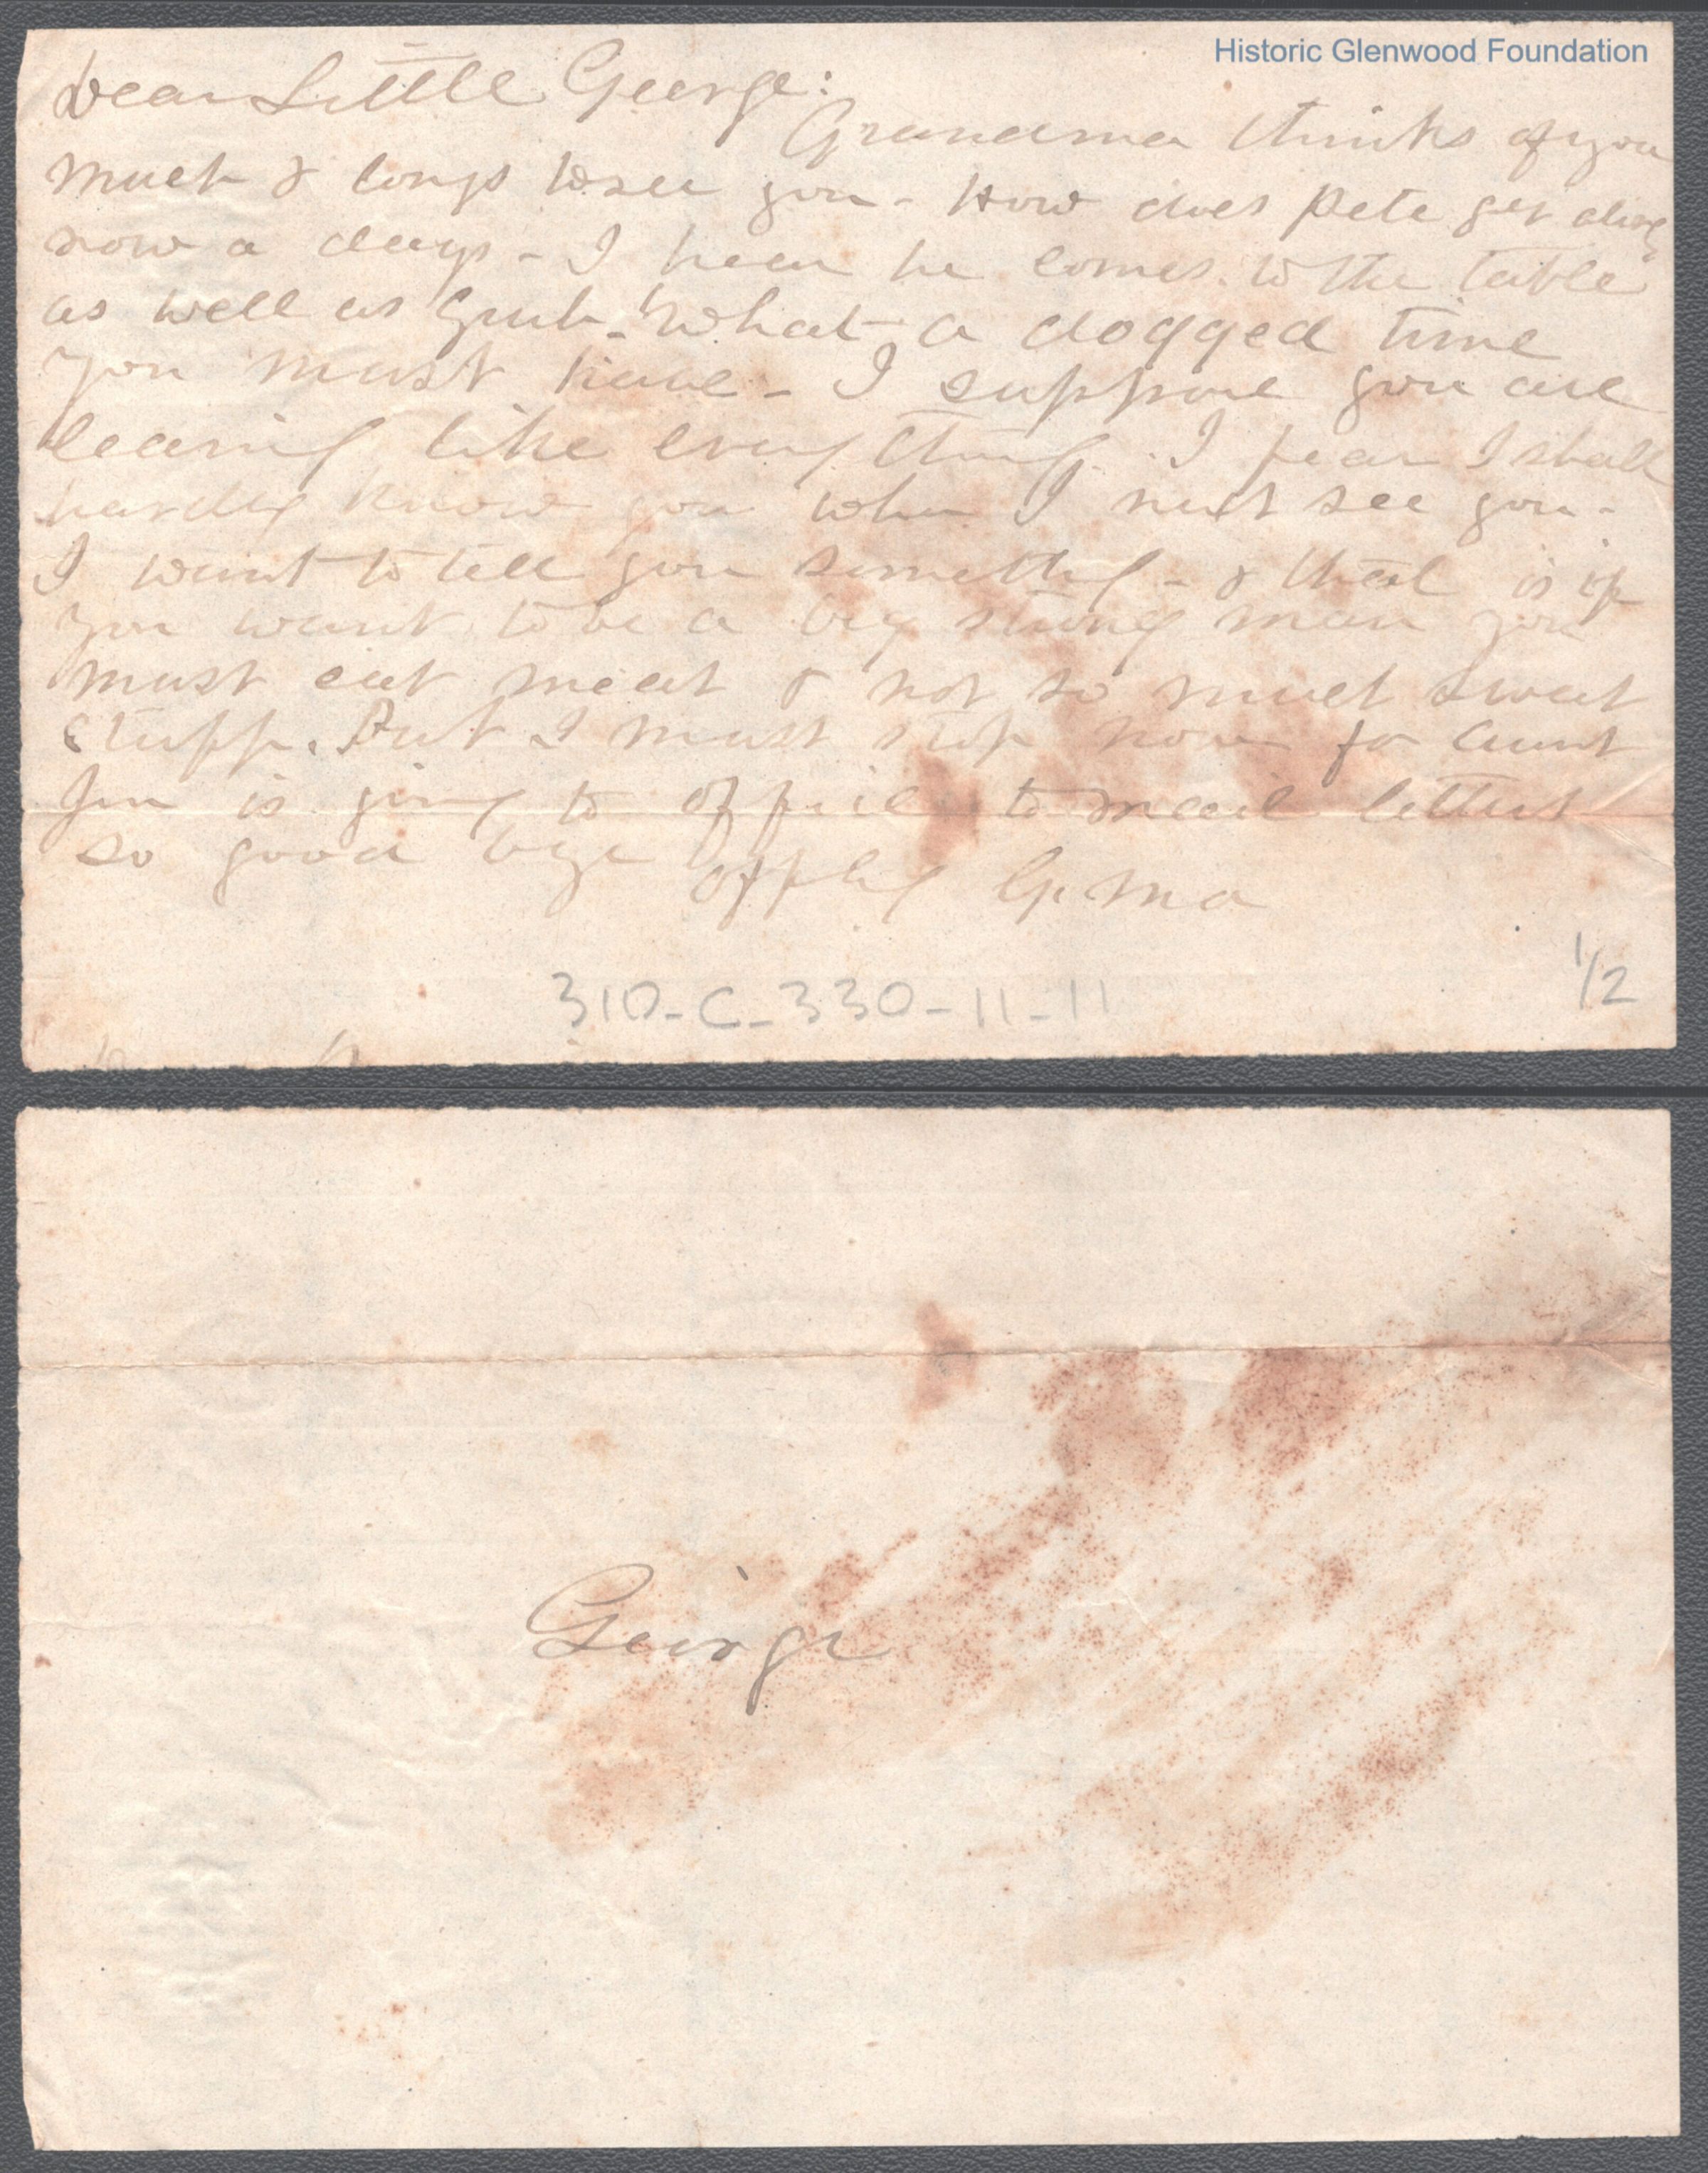 Historic Glenwood Foundation
Dear Little George:
Grandma thinks of you
much & longs to see you - How does Pete get along
now a days - I hear he comes to the table
as well as - What a dogged time
you must have - I suppose you are
learing like everything. I fear I shall
hardly know you when I next see you -
I want to tell you something - & that is if
you want to be a big strong man you
must eat meat & not so much sweet
stuff. But I must stop now for Aunt
is going to office to mail letters
so good bye
G. Ma
310-C-330-11-11
1/2
George